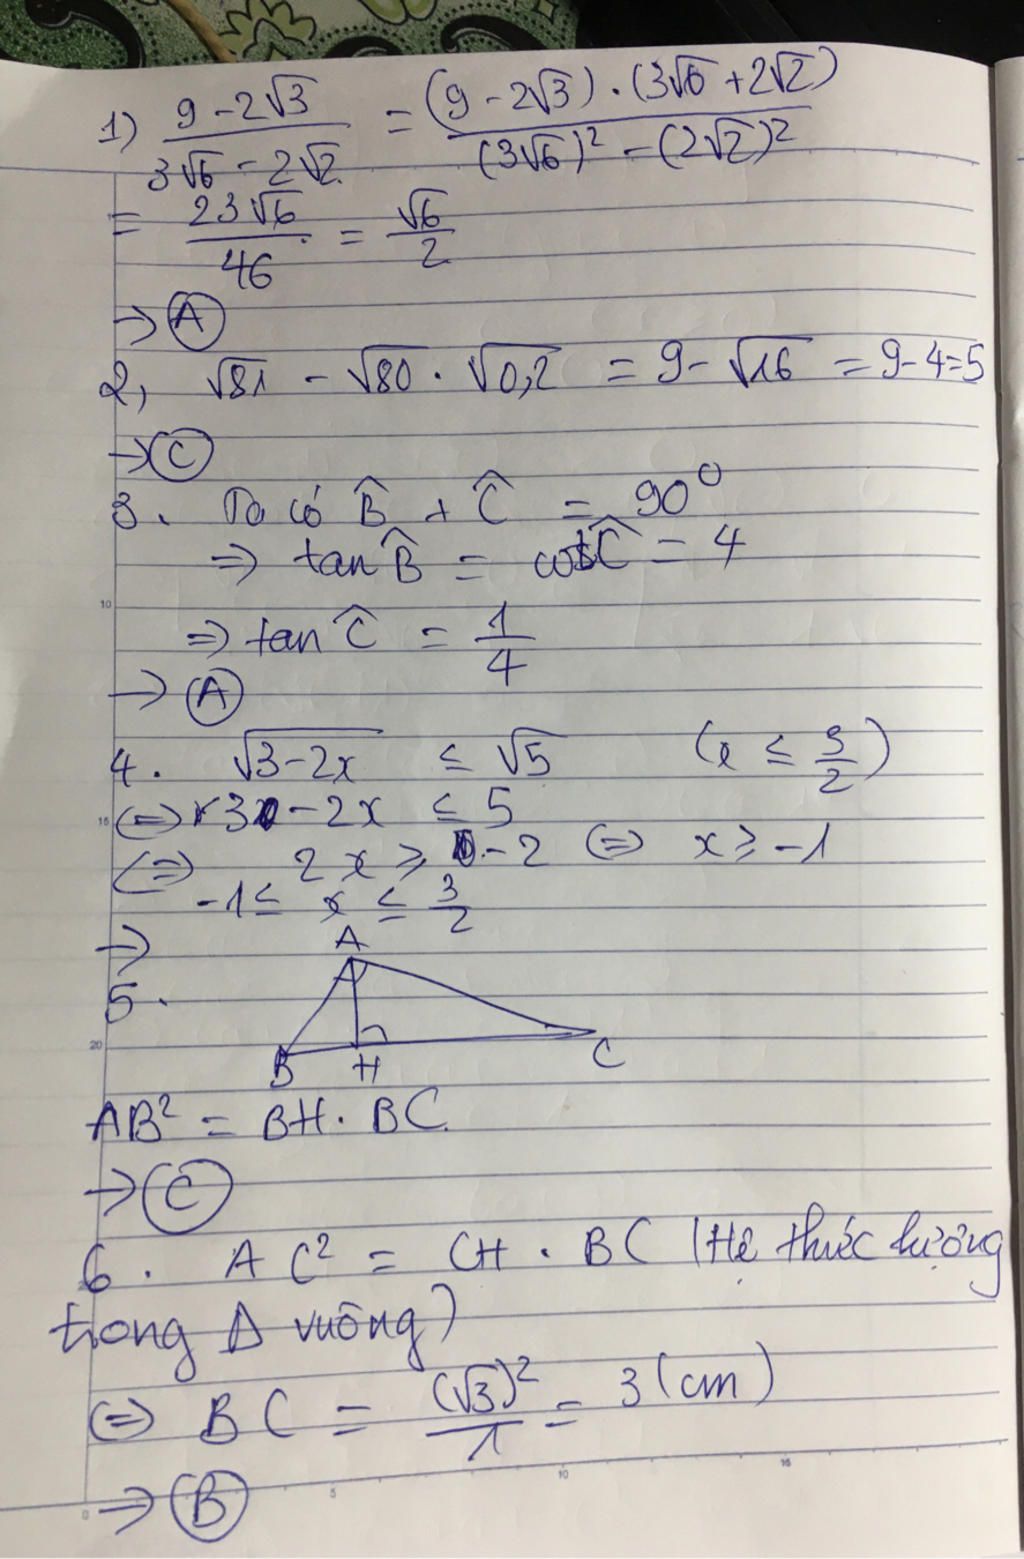 1) (9 - 2√3)/(3√6 - 2√2) = ((9 - 2√3) . (3√6 + 2√2))/((3√6)² - (2√2)²)
= 23√6/46 = √6/2
→ A
2, √81 - √80 . √0,2 = 9 - √16 = 9 - 4 = 5
→ C
3. Ta có B̂ + Ĉ = 90°
⇒ tan B̂ = cot Ĉ = 4
10
⇒ tan Ĉ = 1/4
→ A
4. √(3-2x) ≤ √5 (x ≤ 3/2)
15
⇔ 3 - 2x ≤ 5
⇔ 2x ≥ -2 ⇔ x ≥ -1
-1 ≤ x ≤ 3/2
⇒
A
5.
20
B H C
AB² = BH . BC
→ C
6. AC² = CH . BC (Hệ thức lượng
trong Δ vuông)
⇔ BC = (√3)²/1 = 3 (cm)
→ B
0 5 10 15